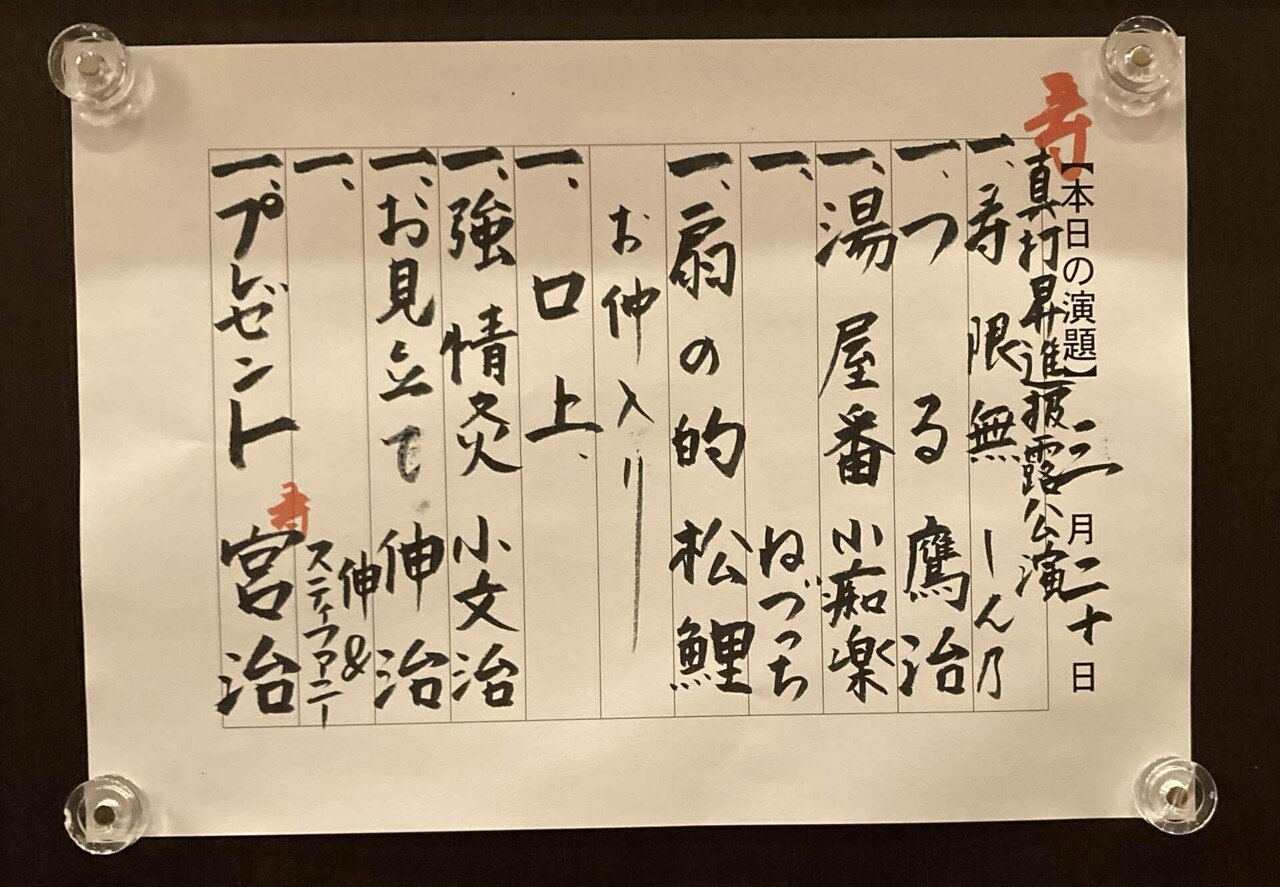 寿
【本日の演題】 三月二十日
真打昇進披露公演
一、寿限無 しん乃
一、つる 鷹治
一、湯屋番 小痴楽
一、 ねづっち
一、扇の的 松鯉
お仲入り
一、口上
一、強情灸 小文治
一、お見立て 伸治
一、 伸&スティファニー
一、プレゼント 宮治
寿